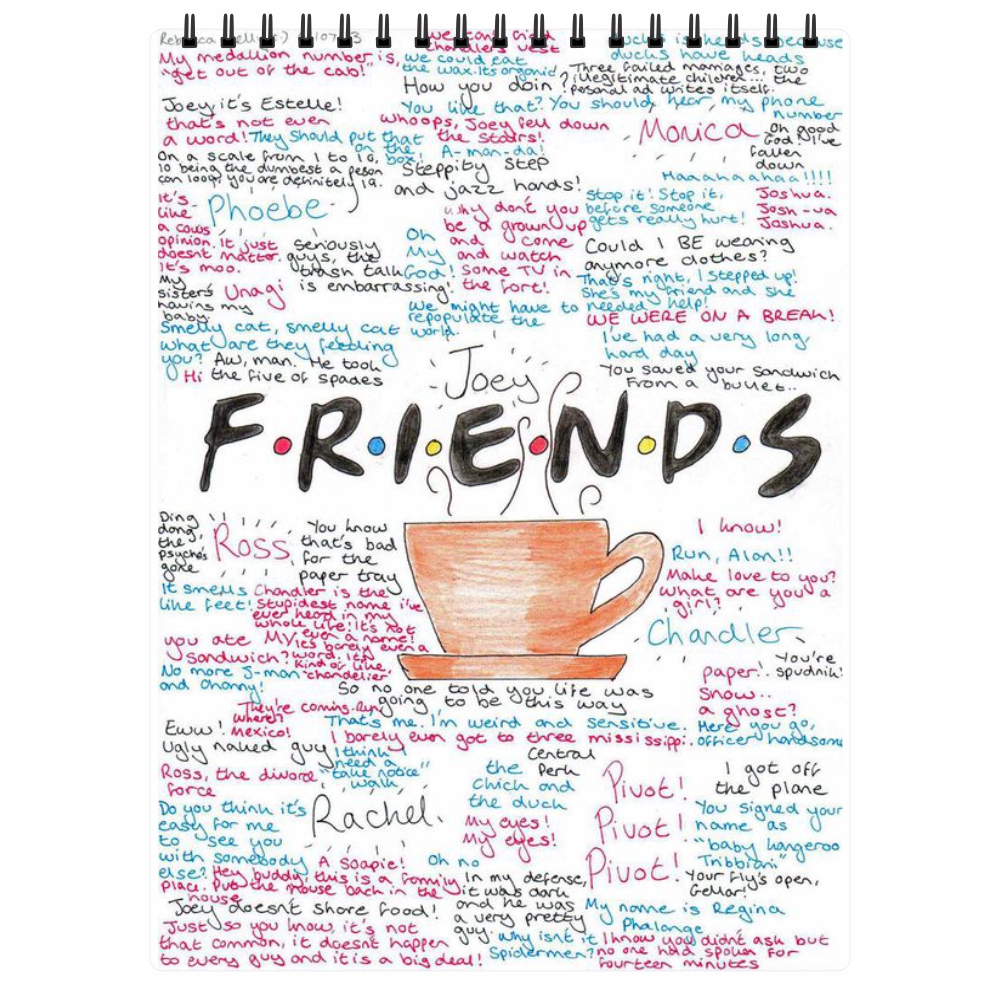 we can't find
Chandler's vest
ducks is heads because
ducks have heads
My medallion number is,
"get out of the cab!"
we could eat
the wax. Its organic
Three failed marriages, two
illegitimate children... the
personal ad writes itself.
How you doin?
Joey, it's Estelle!
You like that? You should hear my phone
number
that's not even
a word!
whoops, Joey fell down
the stairs!
Monica
Oh good
God! I've
fallen
down
They should put that
on the
box!
A-man-da!
On a scale from 1 to 10,
10 being the dumbest a person
can look, you are definitely 19.
Steppity step
and jazz hands!
Haaahaahaa!!!!
It's
like
a cows
opinion. It just
doesnt matter.
It's moo.
Phoebe
why don't you
be a grown up
and come
and watch
some TV in
the fort!
stop it! Stop it,
before someone
gets really hurt!
Joshua.
Josh-ua
Joshua.
Seriously
guys, the
trash talk
is embarrassing!
Oh
My
God!
Could I BE wearing
anymore clothes?
My
sisters
having my
baby.
Unagi
That's right, I stepped up!
She's my friend and she
needed help!
We might have to
repopulate the
world.
WE WERE ON A BREAK!
Smelly cat, smelly cat
what are they feeding
you?
I've had a very long,
hard day
Aw, man. He took
the five of spades
Hi
You saved your sandwich
from a bullet..
Joey
F·R·I·E·N·D·S
Ding
dong,
the
psycho's
gone
Ross
You know
that's bad
for the
paper tray
I know!
Run, Alan!!
It smells
like feet!
Chandler is the
stupidest name i've
ever heard in my
whole life! It's not
even a name!
it's barely even a
word. It's
kind of like,
chandelier
Make love to you?
what are you a
girl?
Chandler
you ate MY
sandwich?
You're
spudnik!
paper!.
snow..
a ghost?
No more J-man
and Channy!
So no one told you life was
going to be this way
They're coming. Run,
where?
Mexico!
That's me. I'm weird and sensitive.
Here you go,
officer handsome
Eww!
Ugly naked guy
I barely even got to three mississippi.
I think I
need a
"take notice"
walk
Central
Perk
Ross, the divorce
force
the
Chick and
the duck
Pivot!
Pivot!
Pivot!
I got off
the plane
Do you think it's
easy for me
to see you
with somebody
else?
Rachel.
My eyes!
My eyes!
You signed your
name as
"baby kangeroo
Tribbiani"
A soapie!
Oh no
Hey buddy, this is a family
place. Put the mouse back in the
house
In my defense,
it was dark
and he was
a very pretty
guy.
Your fly's open,
Gellar!
Joey doesn't share food!
My name is Regina
Phalange
Just so you know, it's not
that common, it doesnt happen
to every guy and it is a big deal!
Why isnt it
Spidermen?
I know you didn't ask but
no one had spoken for
fourteen minutes